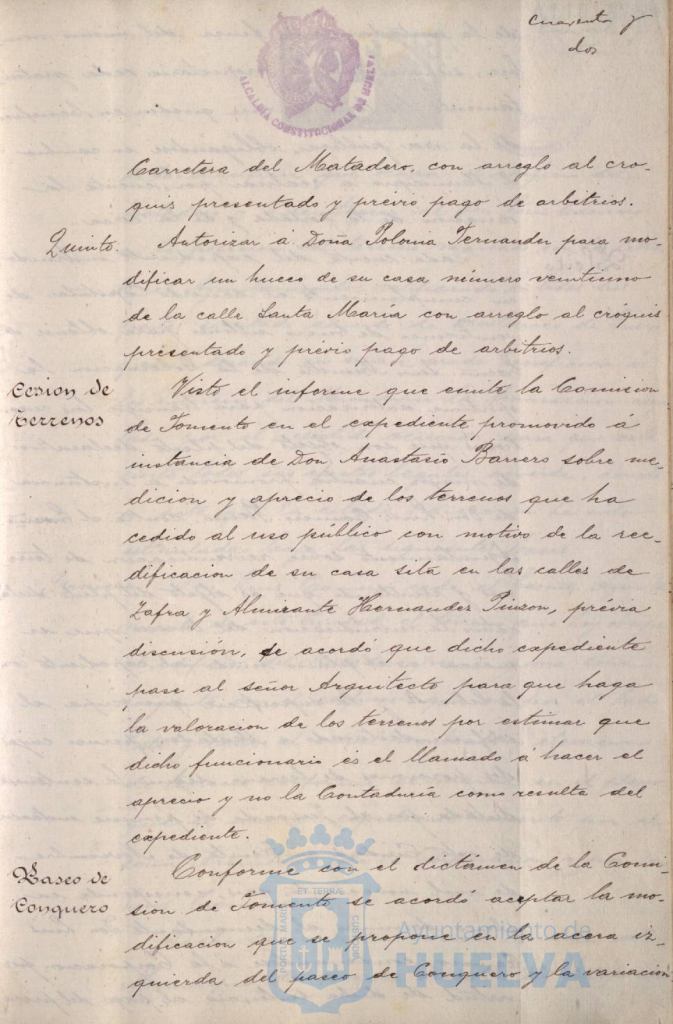 cuarenta y
dos
ALCALDIA CONSTITUCIONAL DE HUELVA
Carretera del Matadero, con arreglo al cro-
quis presentado y prévio pago de arbitrios.
Quinto. Autorizar á Doña Polonia Fernander para mo-
dificar un hueco de su casa número veintiuno
de la calle Santa María con arreglo al cróquis
presentado y prévio pago de arbitrios.
Cesion de
terrenos
Visto el informe que emite la Comision
de Fomento en el expediente promovido á
instancia de Don Anastasio Barrero sobre me-
dicion y aprecio de los terrenos que ha
cedido al uso público con motivo de la ree-
dificacion de su casa sita en las calles de
Zafra y Almirante Hernandez Pinzon, prévia
discusión, se acordó que dicho expediente
pase al señor Arquitecto para que haga
la valoracion de los terrenos por estimar que
dicho funcionario és el llamado á hacer el
aprecio y no la Contaduría como resulta del
expediente.
Paseo de
Conquero
Conforme con el dictámen de la Comi-
sion de Fomento se acordó aceptar la mo-
dificacion que se propone en la acera iz-
quierda del paseo de Conquero y la variación
PORTUS MARIS ET TERRÆ CUSTODIA
Ayuntamiento de
HUELVA